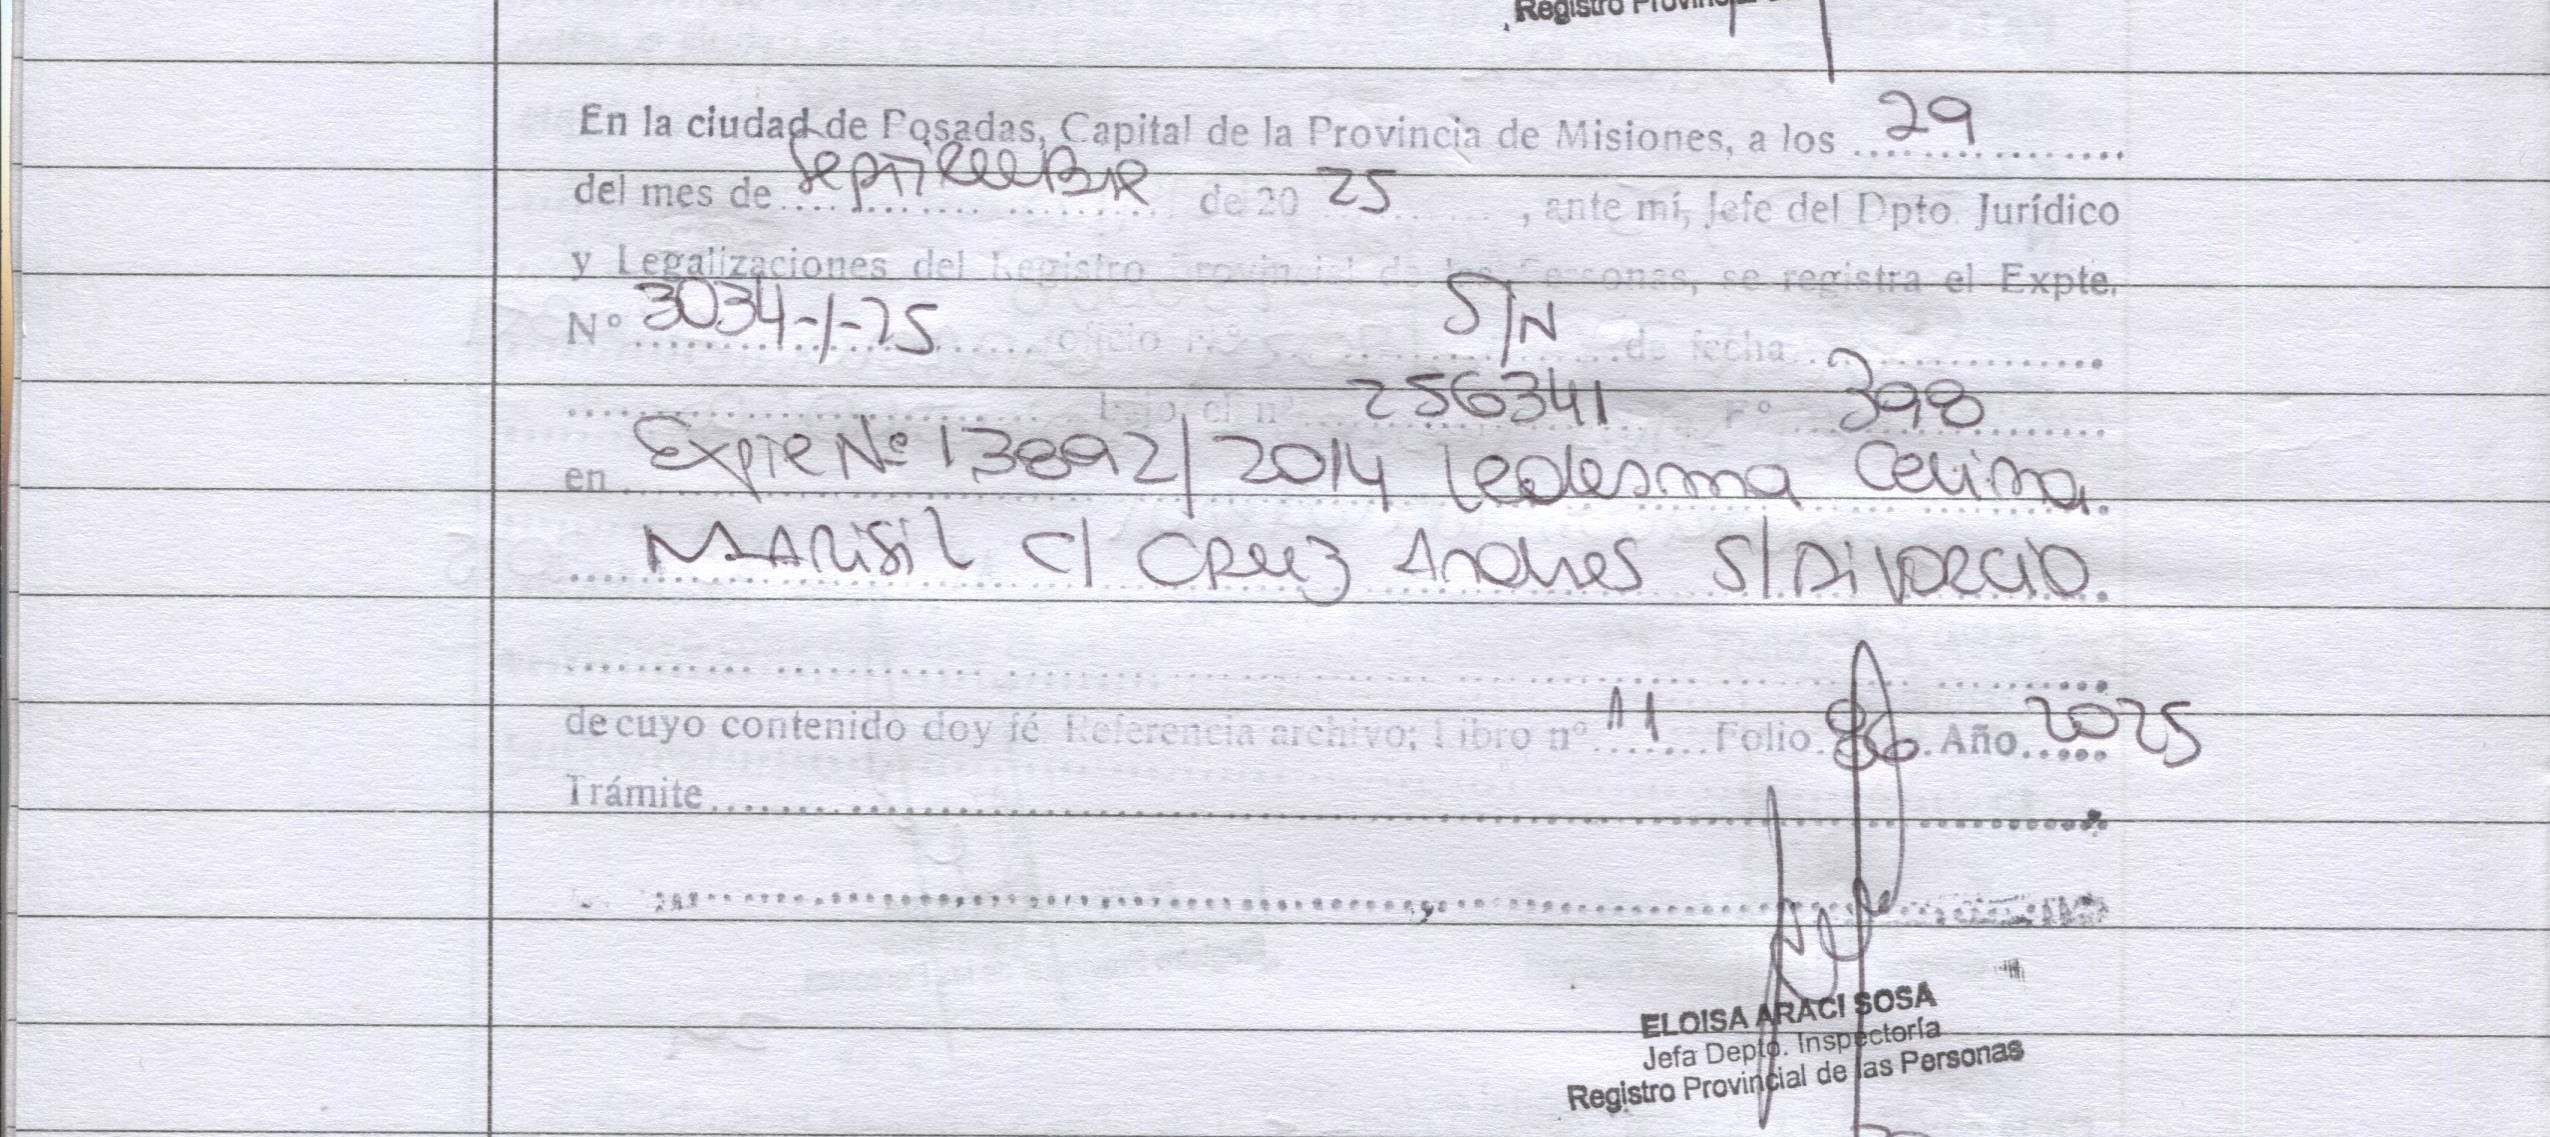 Registro Provincial
En la ciudad de Posadas, Capital de la Provincia de Misiones, a los 29
del mes de septiembre de 20 25, ante mí, Jefe del Dpto. Jurídico
y Legalizaciones del Registro Provincial de las Personas, se registra el Expte.
N° 3034-/-25 oficio n° S/N de fecha
bajo el n° 256341 F° 398
en Expte Nº 13892/2014 Ledesma Celina
Marisil C/ Cruz Andres S/ Divorcio.
de cuyo contenido doy fé. Referencia archivo: Libro n° 11 Folio 86 Año 2025
Trámite
ELOISA ARACI SOSA
Jefa Depto. Inspectoría
Registro Provincial de las Personas